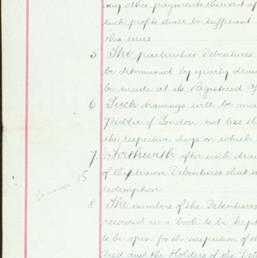 any other payments thereout of
such profits shall be sufficient
this
5 The particular Debentures
be determined by yearly
be made at its Registered
6 Such drawings will be ma
Public of London not less th
the respective days on which
7 Forthwith after each draw
of the drawn Debentures that
15
redemption
8 The numbers of the Debentures
recorded in a book to be kept
to be open for the inspection of
and the Holders of the Deb